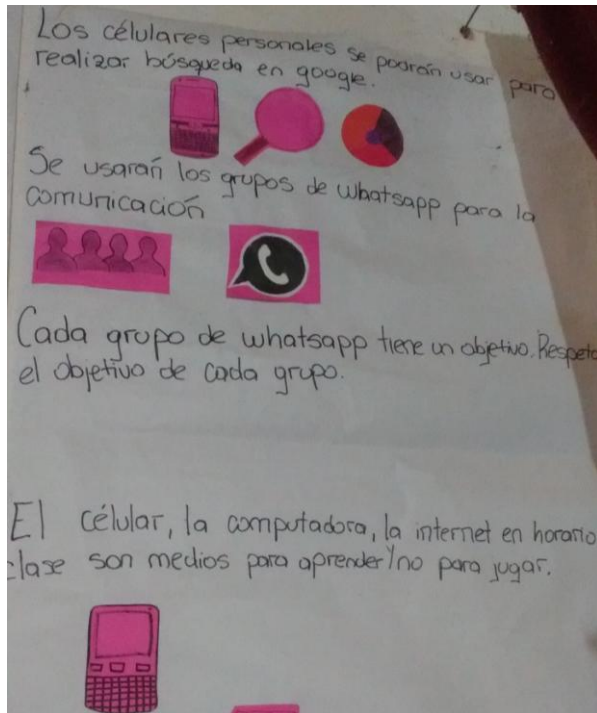 Los célulares personales se podrán usar para
realizar búsqueda en google.
Se usarán los grupos de whatsapp para la
comunicación
Cada grupo de whatsapp tiene un objetivo. Respeta
el objetivo de cada grupo.
El célular, la computadora, la internet en horario
clase son medios para aprender/no para jugar.